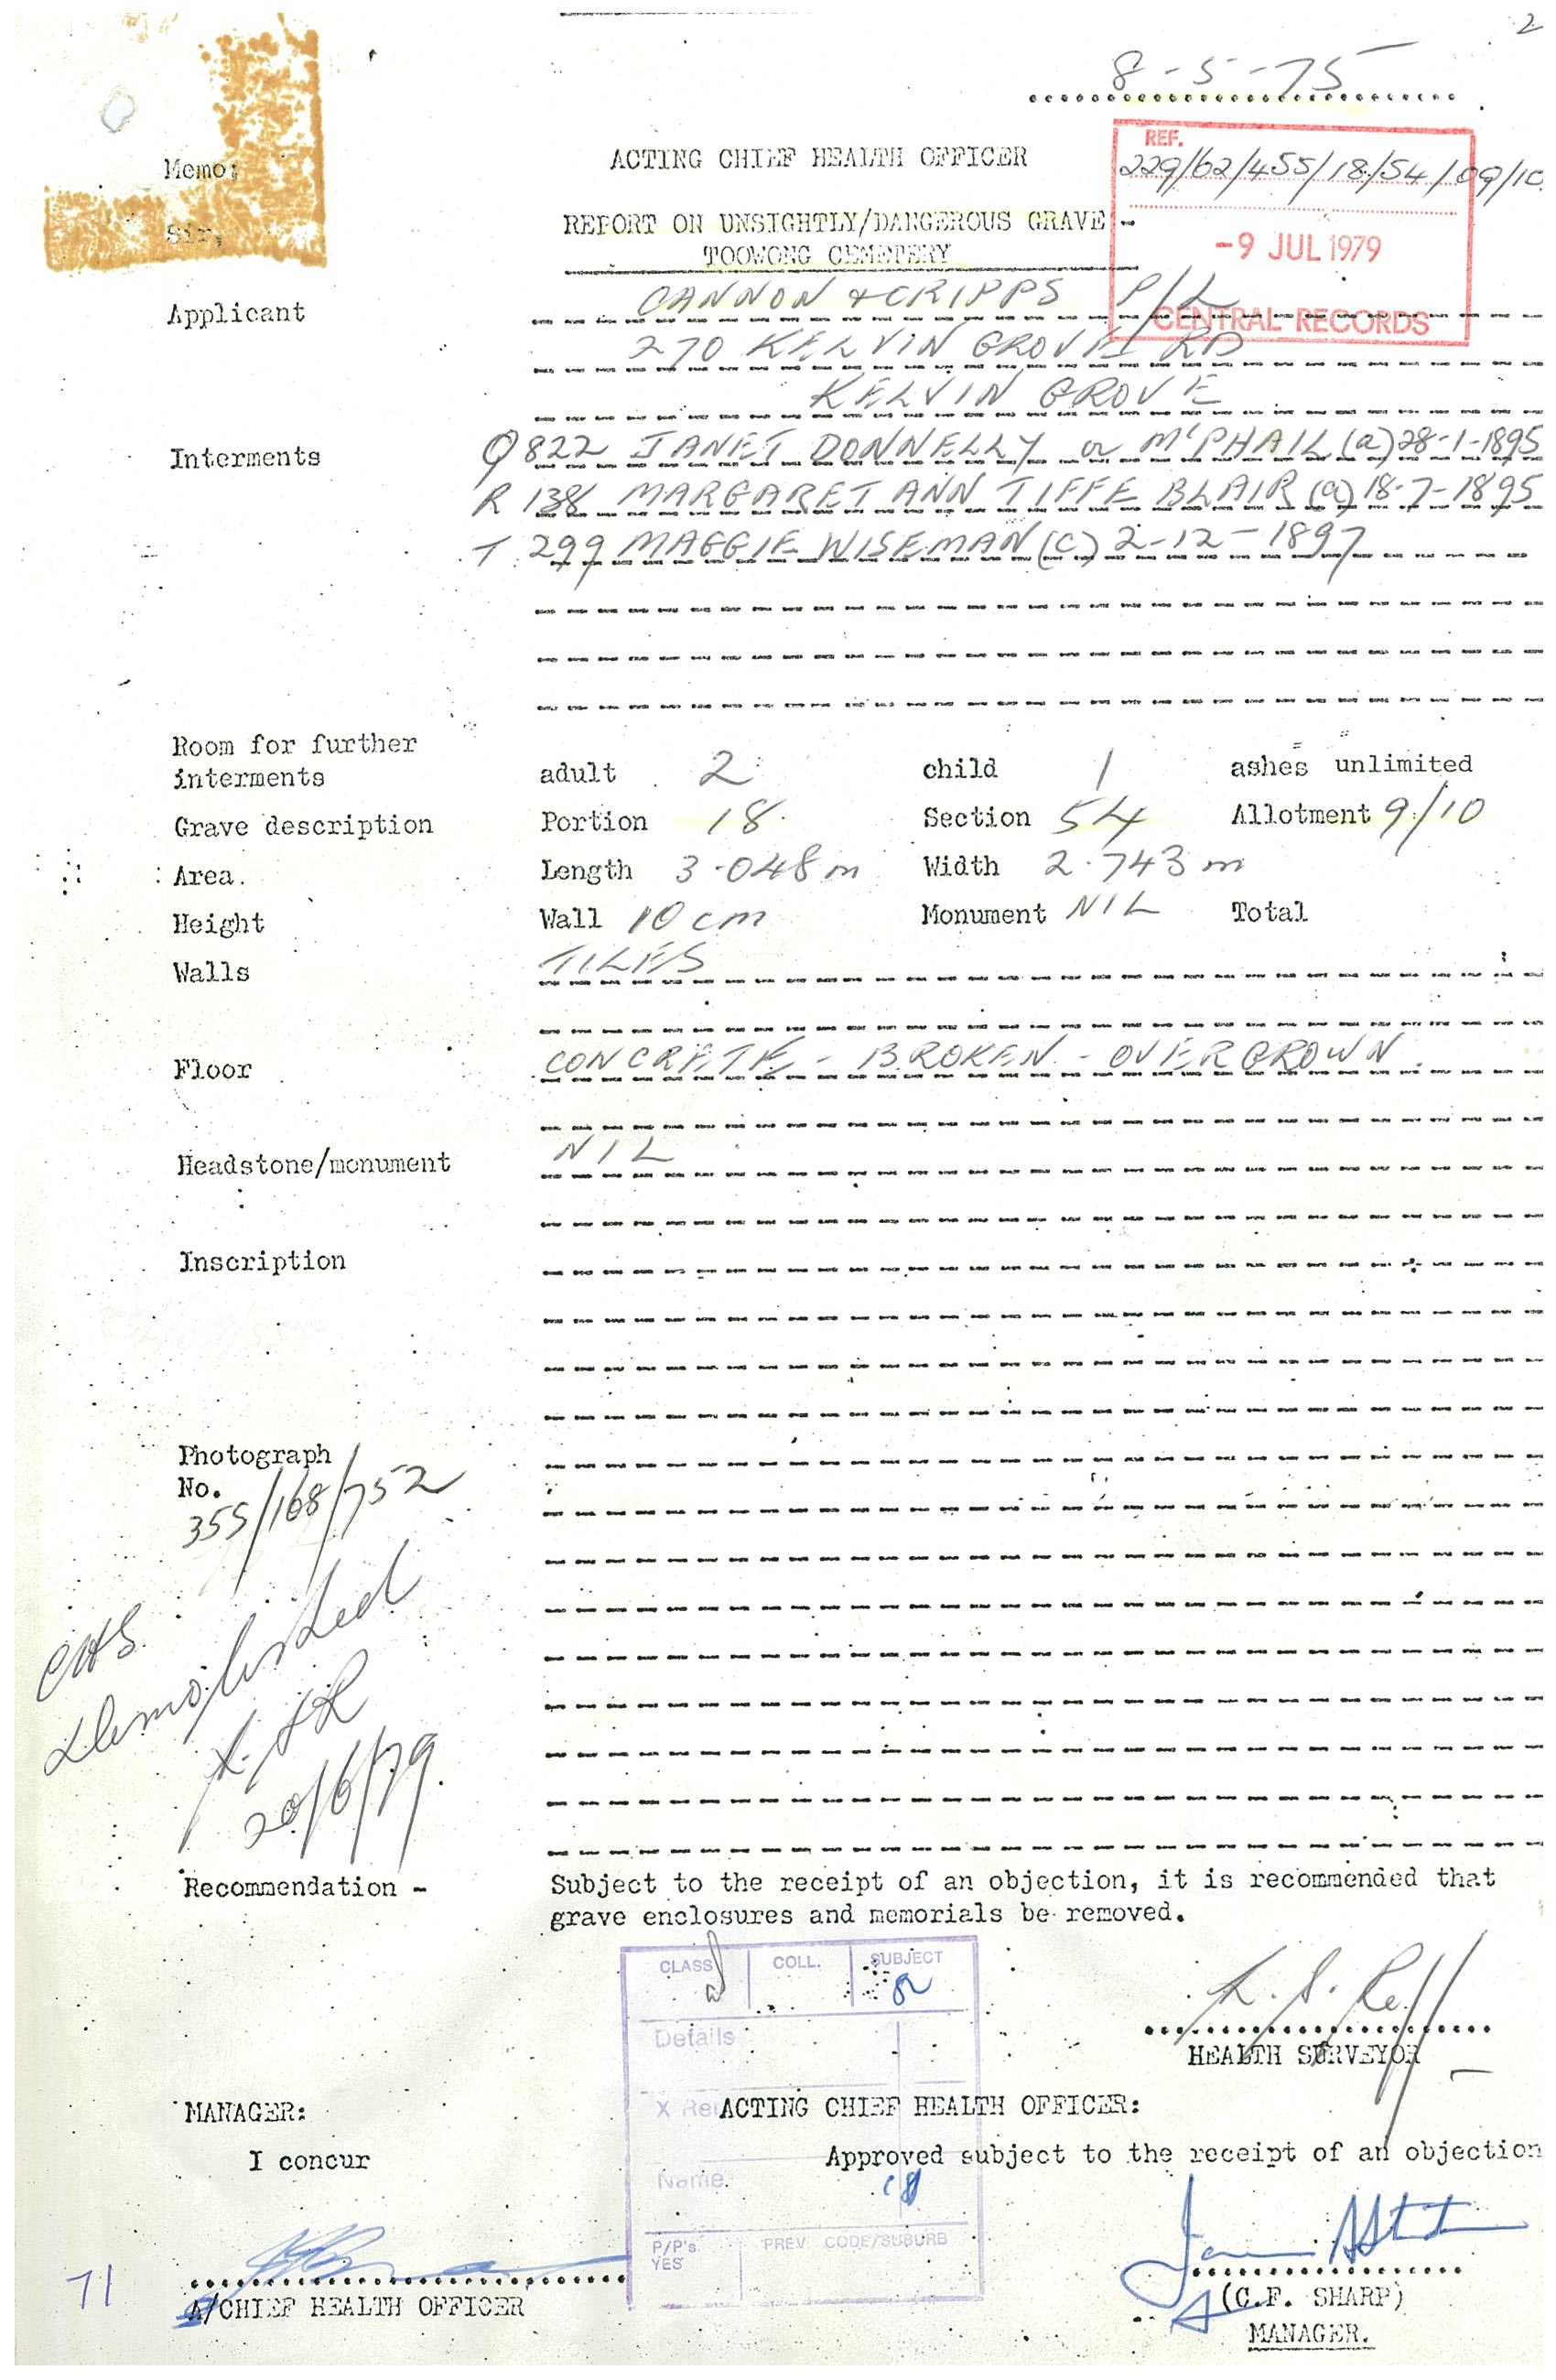 2
8-5-75
Memo:
Sir,
ACTING CHIEF HEALTH OFFICER
REF.
229/62/455/18/54/09/10
REPORT ON UNSIGHTLY/DANGEROUS GRAVE -
TOOWONG CEMETERY
-9 JUL 1979
CENTRAL RECORDS
Applicant CANNON & CRIPPS P/L
270 KELVIN GROVE RD
KELVIN GROVE
Interments Q822 JANET DONNELLY or McPHAIL (a) 28-1-1895
R 138 MARGARET ANN TIFFE BLAIR (a) 18-7-1895
T 299 MAGGIE WISEMAN (c) 2-12-1897
Room for further
interments adult 2 child 1 ashes unlimited
Grave description Portion 18 Section 54 Allotment 9/10
Area. Length 3.048 m Width 2.743 m
Height Wall 10 cm Monument NIL Total
Walls TILES
Floor CONCRETE - BROKEN - OVERGROWN.
Headstone/monument NIL
Inscription
Photograph
No.
355/168/752
CHS.
Demolished
20/6/79.
Recommendation - Subject to the receipt of an objection, it is recommended that
grave enclosures and memorials be removed.
CLASS COLL. SUBJECT
Details
HEALTH SURVEYOR
MANAGER: ACTING CHIEF HEALTH OFFICER:
I concur Approved subject to the receipt of an objection
Name
P/P's PREV. CODE/SUBURB
YES
71
A/CHIEF HEALTH OFFICER (C.F. SHARP)
MANAGER.